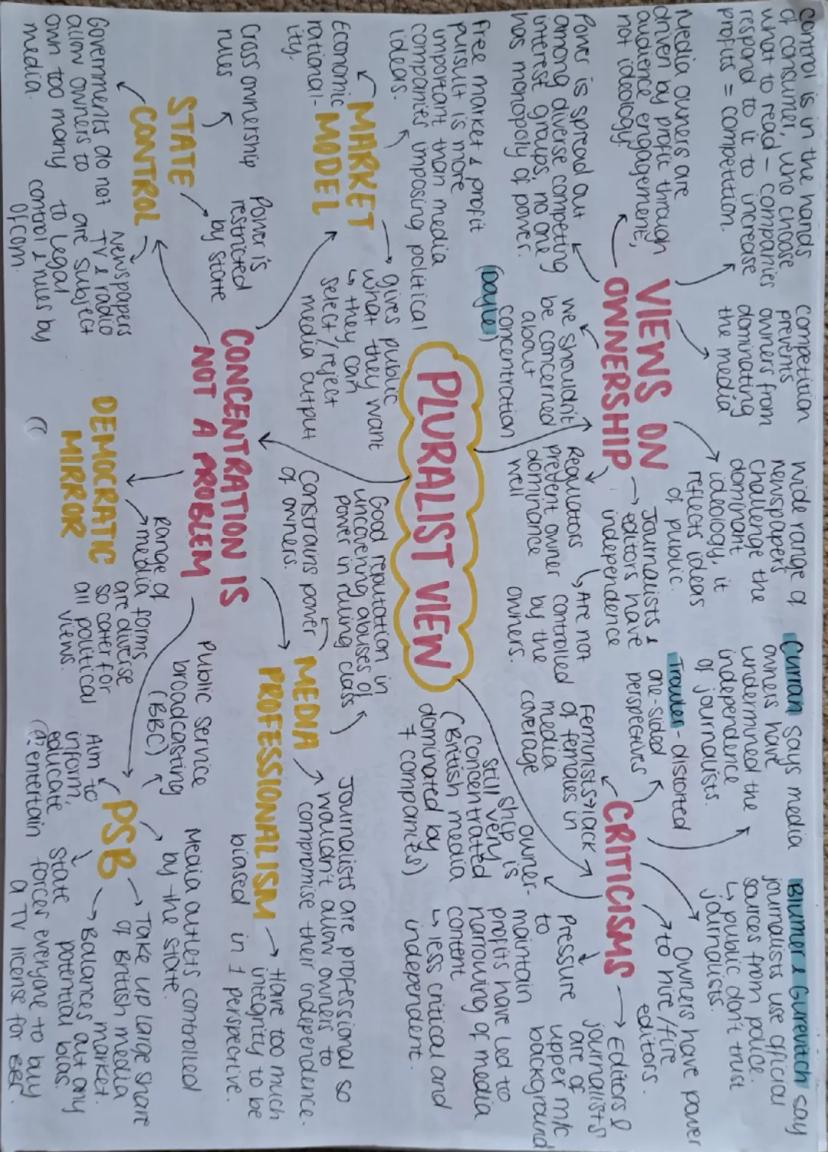 PLURALIST VIEW
VIEWS ON
OWNERSHIP
Control is in the hands
of consumer, who choose
what to read - companies
respond to it to increase
profits = competition.
Media owners are
driven by profit through
audience engagement,
not ideology
Power is spread out
among diverse competing
interest groups, no one
has monopoly of power.
we shouldn't
be concerned
about
concentration
(Doyle)
competition
prevents
owners from
dominating
the media
wide range of
newspapers
challenge the
dominant
ideology, it
reflects ideas
of public.
Journalists &
editors have
independence
Regulators
prevent owner
dominance
well
Are not
controlled
by the
owners.
CRITICISMS
Curran says media
owners have
undermined the
independence
of journalists.
Trowler - distorted
one-sided
perspectives
Blumer & Gurevitch say
journalists use official
sources from police.
↳ public don't trust
journalists.
Owners have power
to hire/fire
editors.
Editors &
journalists
are of
upper m/c
background
Feminists → lack
of females in
media
coverage
owner-
ship is
still very
concentrated
(British media
dominated by
7 companies)
Pressure
to
maintain
profits have led to
narrowing of media
content
↳ less critical and
independent.
CONCENTRATION IS
NOT A PROBLEM
MARKET
MODEL
Free market & profit
pursuit is more
important than media
companies imposing political
ideas.
Economic
rational-
ity.
gives public
what they want
↳ they can
select/reject
media output
STATE
CONTROL
Cross ownership
rules
Power is
restricted
by state
Governments do not
allow owners to
own too many
media.
Newspapers
TV & radio
are subject
to legal
control & rules by
Ofcom.
MEDIA
PROFESSIONALISM
Good reputation in
uncovering abuses of
power in ruling class
Constrains power
of owners.
Journalists are professional so
wouldn't allow owners to
compromise their independence.
Have too much
integrity to be
biased in 1 perspective.
DEMOCRATIC
MIRROR
Range of
media forms
are diverse
so cater for
all political
views.
PSB
Public service
broadcasting
(BBC)
Media outlets controlled
by the state.
Take up large share
of British media
market.
Balances out any
potential bias.
Aim to
inform,
educate
& entertain
State
forces everyone to buy
a TV license for BBC.